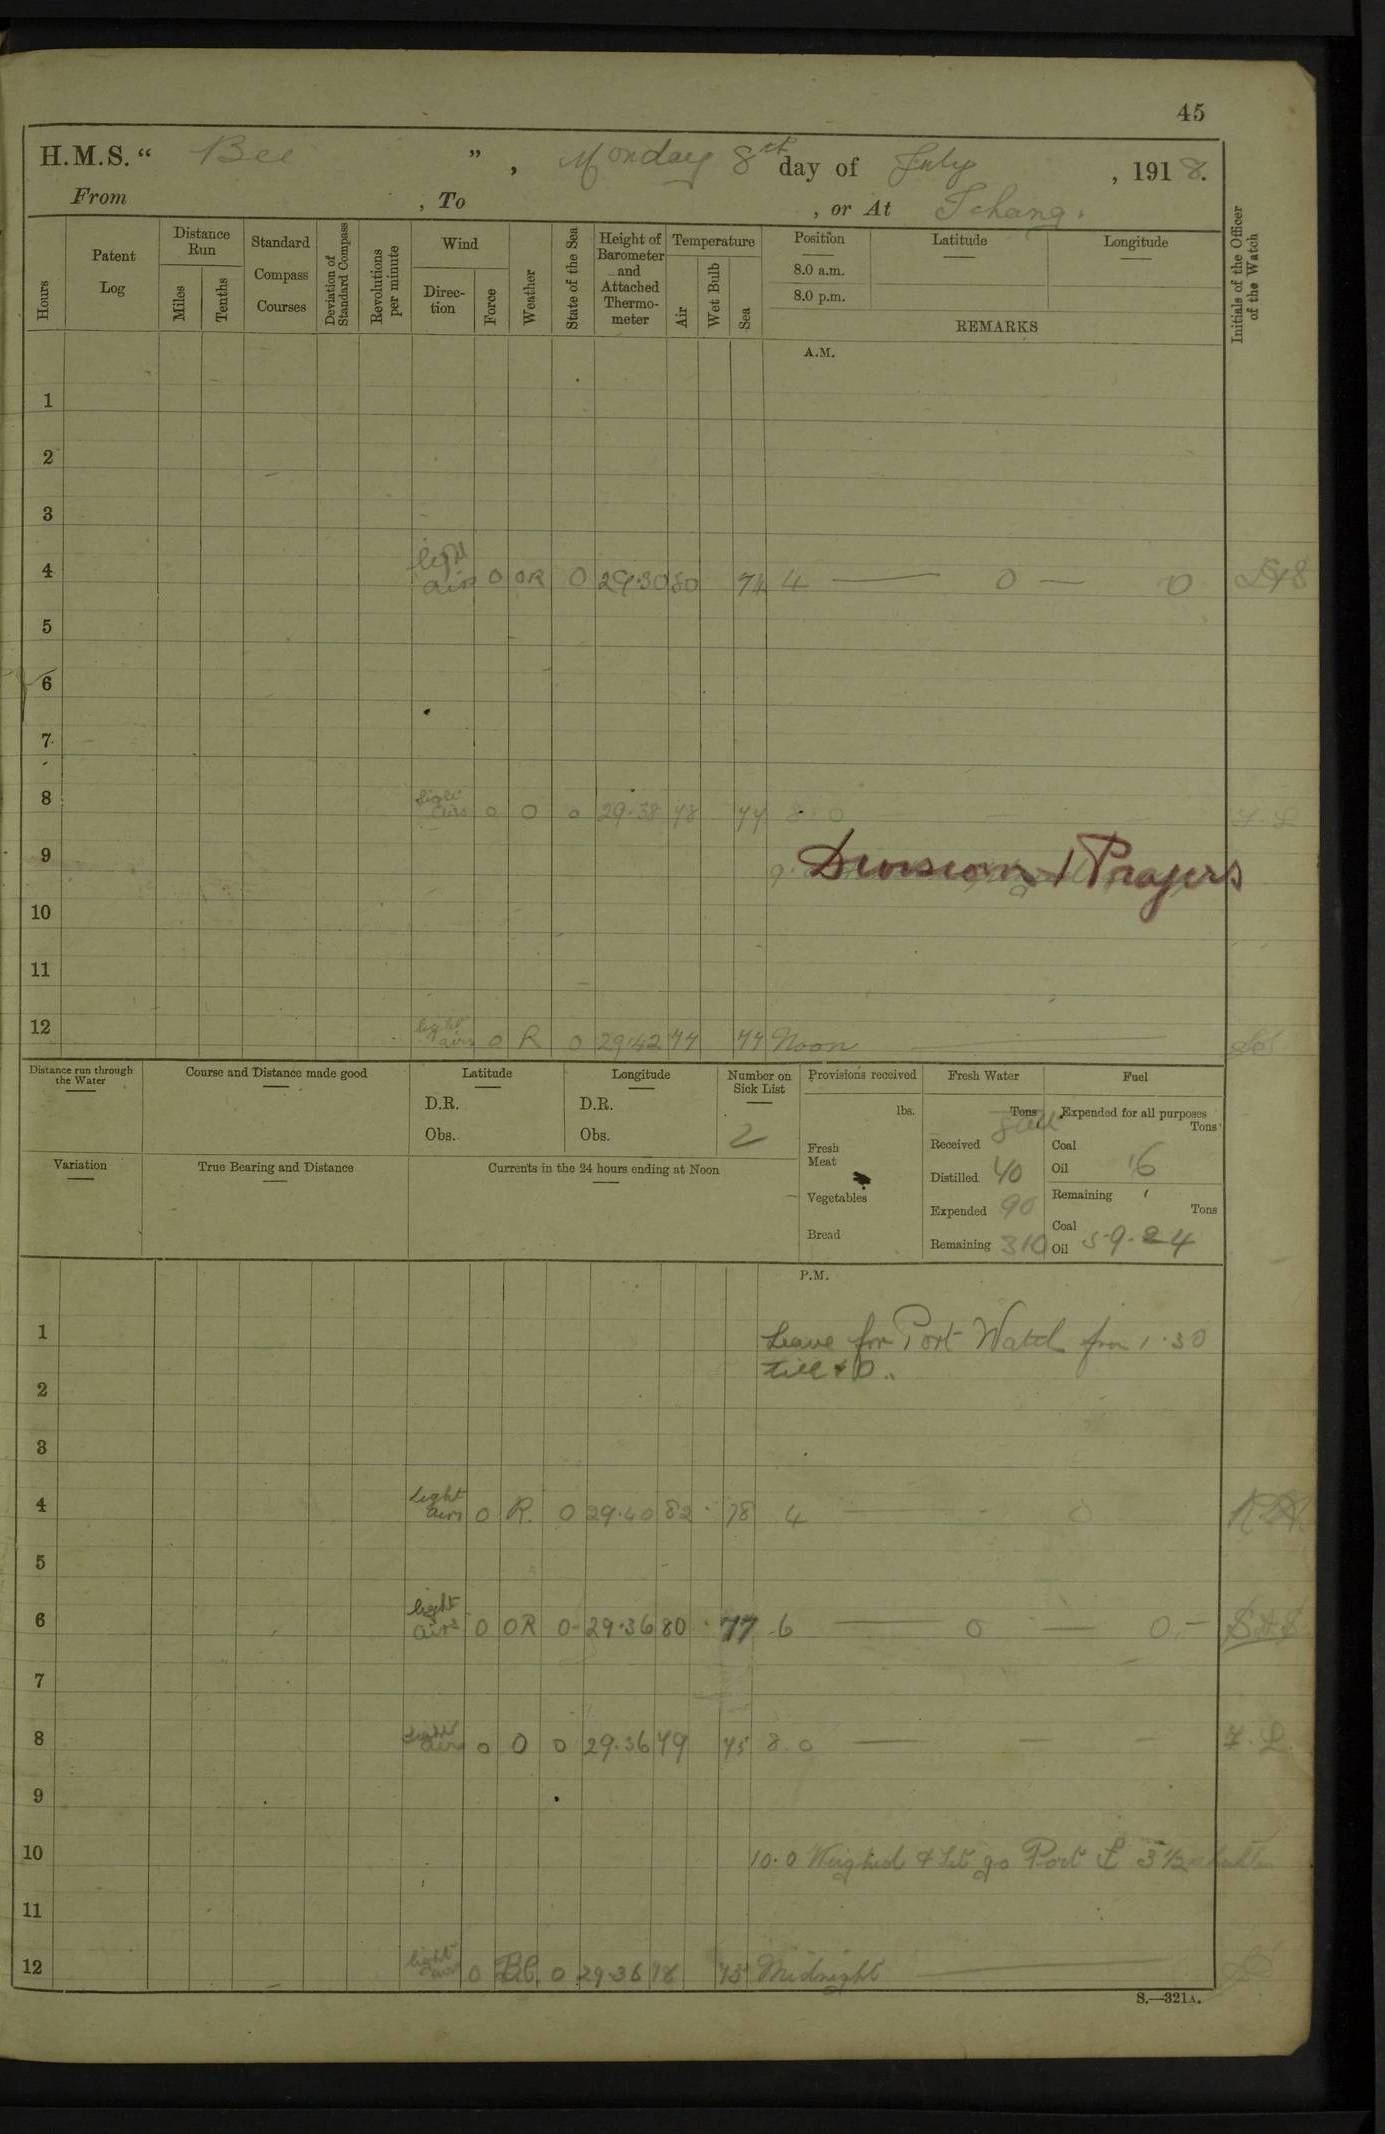 45
H.M.S. “ Bee ” , Monday 8th day of July , 1918.
From , To , or At Ichang.
Hours
Patent Log
Distance Run
Miles
Tenths
Standard Compass Courses
Deviation of Standard Compass
Revolutions per minute
Wind
Direction
Force
Weather
State of the Sea
Height of Barometer and Attached Thermometer
Temperature
Air
Wet Bulb
Sea
Position
8.0 a.m.
8.0 p.m.
Latitude
Longitude
REMARKS
Initials of the Officer of the Watch
A.M.
1
2
3
4 light airs 0 OR 0 29.30 80 74 4 — 0 — 0
5
6
7
8 light airs 0 0 0 29.38 78 77 8.0
9 Division & Prayers
10
11
12 light airs 0 R 0 29.42 77 77 Noon
Distance run through the Water
Course and Distance made good
Latitude
D.R.
Obs.
Longitude
D.R.
Obs.
Number on Sick List
2
Provisions received
lbs.
Fresh Meat
Vegetables
Bread
Fresh Water
Tons
Received
Distilled 40
Expended 90
Remaining 310
Fuel
Expended for all purposes
Tons
Coal
Oil 16
Remaining
Tons
Coal
Oil 59.24
Variation
True Bearing and Distance
Currents in the 24 hours ending at Noon
P.M.
1 Leave for Port Watch from 1.30
till
2
3
4 light airs 0 R. 0 29.40 82 78 4 — 0
5
6 light airs 0 OR 0 29.36 80 77 6 — 0 — 0. —
7
8 light airs 0 0 0 29.36 79 75 8.0 — — — F.L.
9
10 10.0 Weighed & let go Port 3½
11
12 light airs 0 BC. 0 29.36 78 75 Midnight
S.—321A.